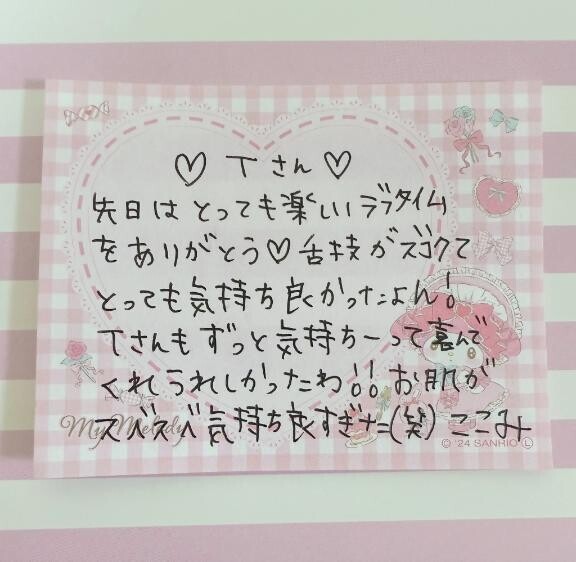 ♡ Tさん ♡
先日はとっても楽しいラブタイム
をありがとう♡舌技がスゴクて
とっても気持ち良かったよん!
Tさんもずっと気持ちーって喜んで
くれうれしかったわ!!お肌が
スベスベ気持ち良すぎた(笑) ここみ
My Melody
© '24 SANRIO Ⓛ